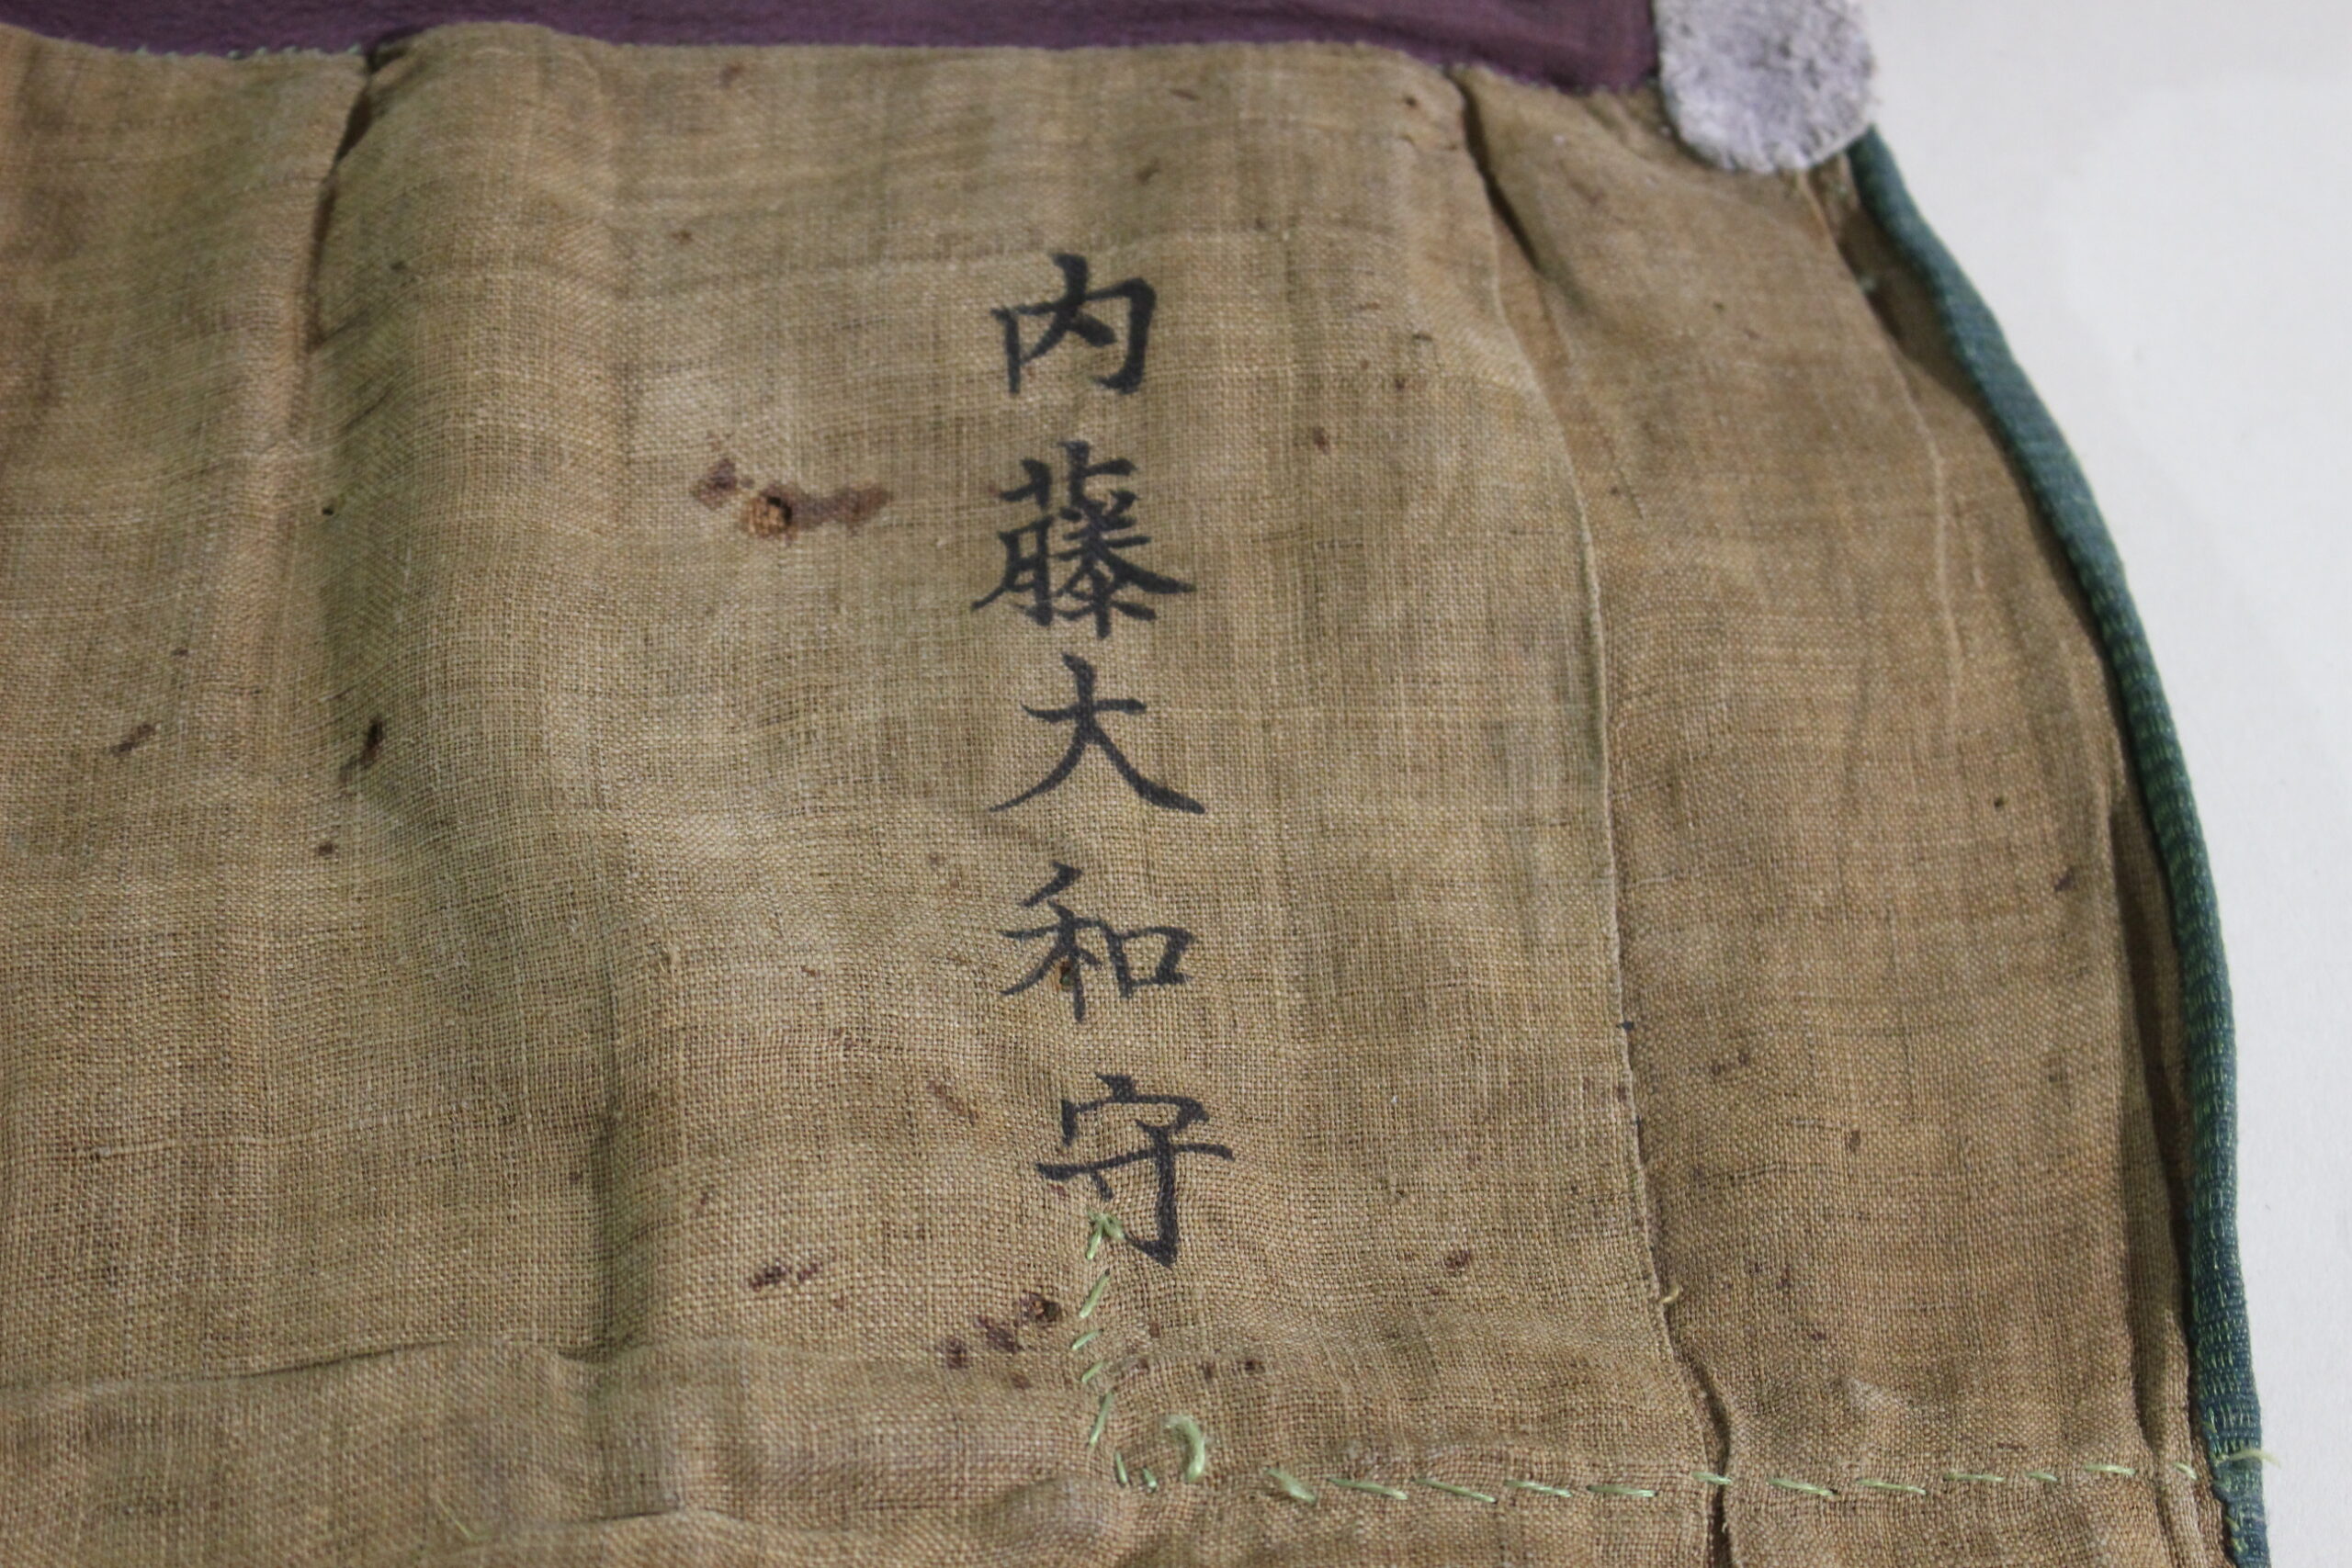 内藤大和守